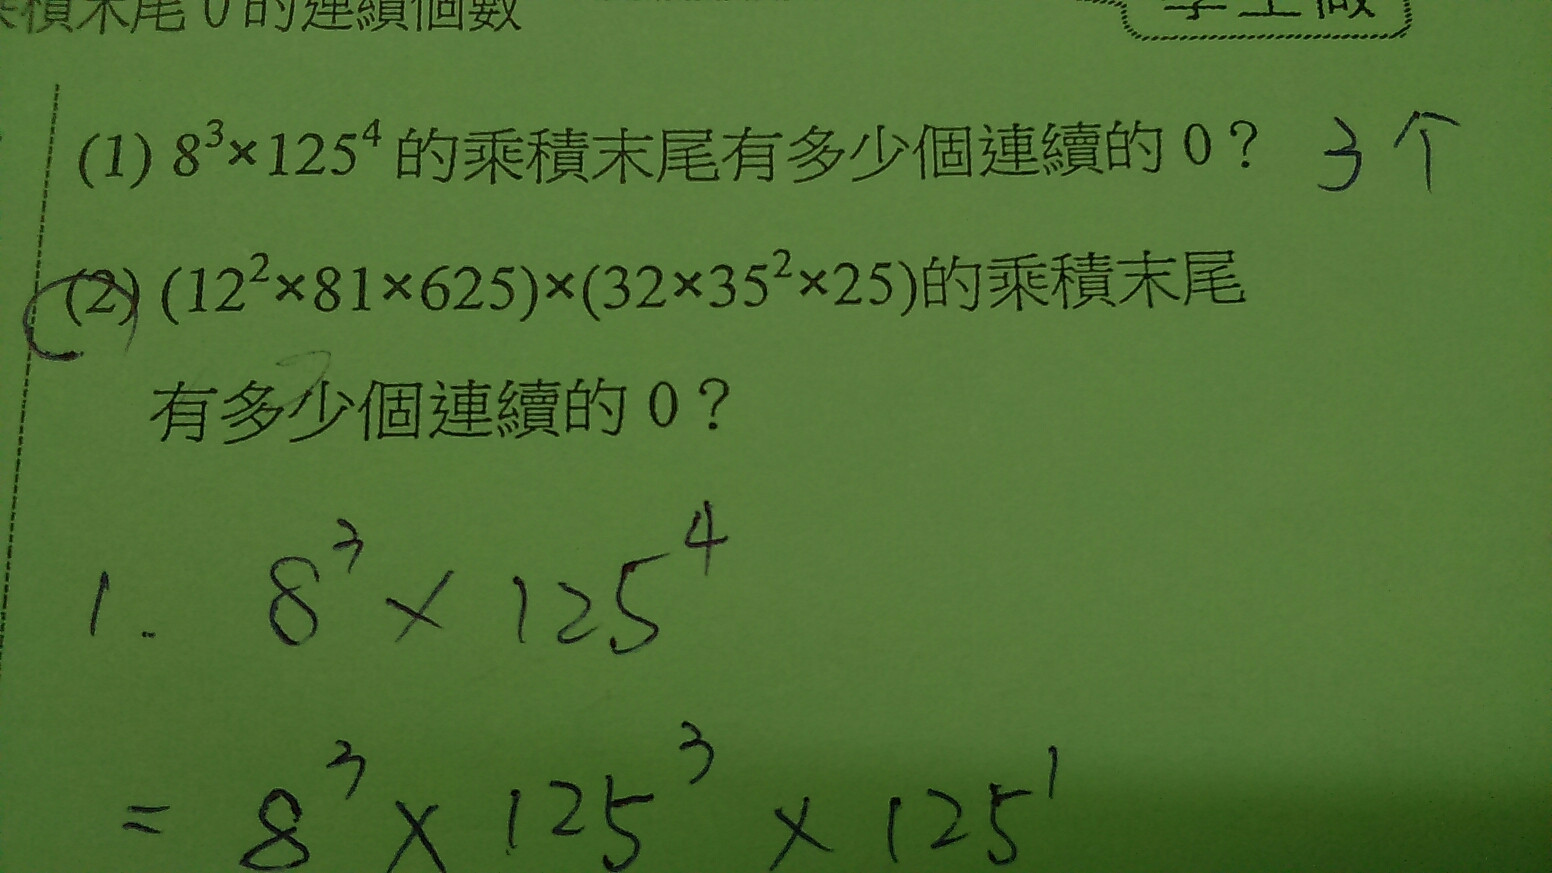 積末尾 0 的連續個數
(1) 8³×125⁴ 的乘積末尾有多少個連續的 0？ 3个
(2) (12²×81×625)×(32×35²×25)的乘積末尾
有多少個連續的 0？
1. 8³ × 125⁴
= 8³ × 125³ × 125¹